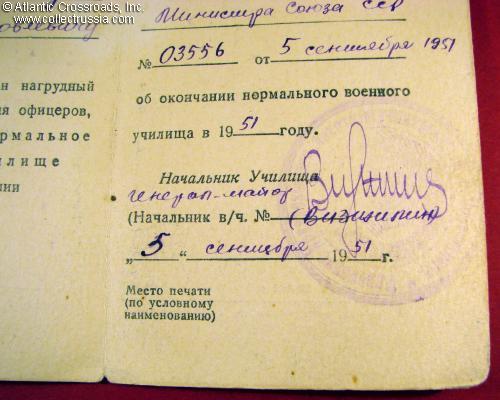 © Atlantic Crossroads, Inc.
www.collectrussia.com
Министра Союза ССР
№ 03556 от 5 сентября 1951
об окончании нормального военного
училища в 1951 году.
Начальник Училища
генерал-майор
(Начальник в/ч. №
„5“ сентября 1951 г.
Место печати
(по условному
наименованию)
н нагрудный
ия офицеров,
рмальное
илище
нии